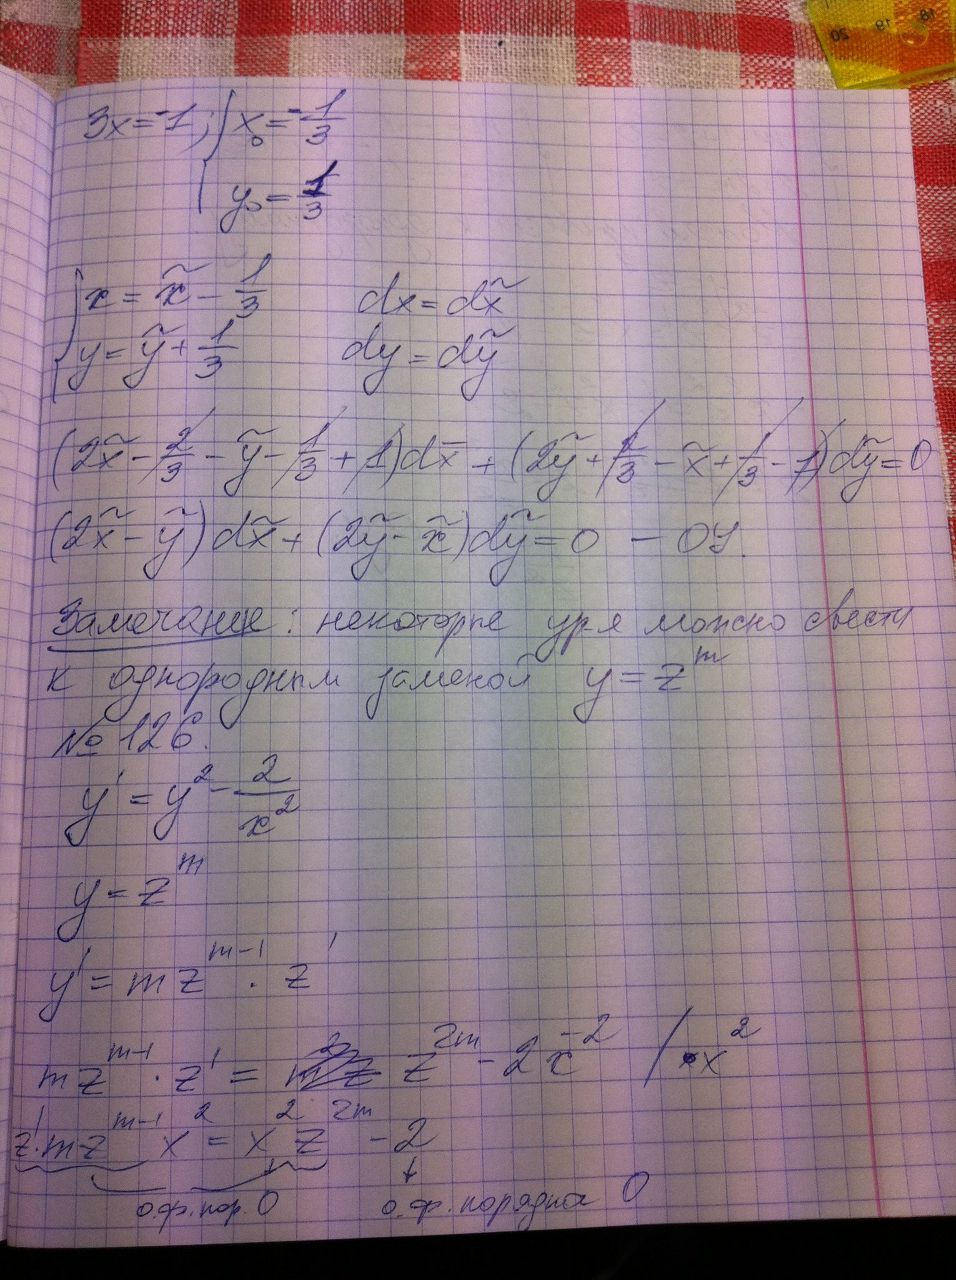 3x=-1; { x₀=-1/3
y₀=1/3
{ x = x̃ - 1/3 dx = dx̃
y = ỹ + 1/3 dy = dỹ
(2x̃ - 2/3 - ỹ - 1/3 + 1)dx̃ + (2ỹ + 2/3 - x̃ + 1/3 - 1)dỹ = 0
(2x̃ - ỹ)dx̃ + (2ỹ - x̃)dỹ = 0 - ОУ.
Замечание: некоторые ур-я можно свести
к однородным заменой y = z^m
№ 126.
y' = y² - 2/x²
y = z^m
y' = mz^(m-1) · z'
mz^(m-1) · z' = z^(2m) - 2x^(-2) / · x²
z'·mz^(m-1) x² = x² z^(2m) - 2
о.ф.пор. 0 о.ф.порядка 0
18
19
20